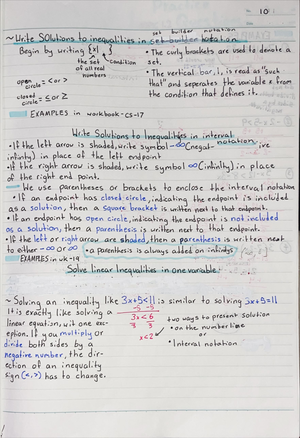 10
set builder notation
~Write Solutions to inequalities in set-builder notation
Begin by writing {x|
the set of all real numbers
condition
• The curly brackets are used to denote a set.
• The vertical bar, |, is read as "such that" and seperates the variable x from the condition that defines it.
open circle = < or >
closed circle = ≤ or ≥
EXAMPLES in workbook-CS-17
Write Solutions to Inequalities in interval notation
• If the left arrow is shaded, write symbol -∞ (negative
infinity) in place of the left endpoint
• if the right arrow is shaded, write symbol ∞ (infinity) in place
of the right end point.
We use parentheses or brackets to enclose the interval notation
• If an endpoint has closed circle, indicating the endpoint is included
as a solution, then a square bracket is written next to that endpoint.
• If an endpoint has open circle, indicating the endpoint is not included
as a solution, then a parenthesis is written next to that endpoint.
• If the left or right arrow are shaded, then a parenthesis is written next
to either -∞ or ∞ • a parenthesis is always added on infinity
EXAMPLES in wk-19
Solve linear Inequalities in one variable
~ Solving an inequality like 3x+5<11 is similar to solving 3x+5=11
It is exactly like solving a
linear equation, wit one exc-
eption. If you multiply or
divide both sides by a
negative number, the dir-
ection of an inequality
sign (<, >) has to change.
-5 -5
3x < 6
3 3
x < 2
two ways to present solution
• on the number line
or
• Interval notation